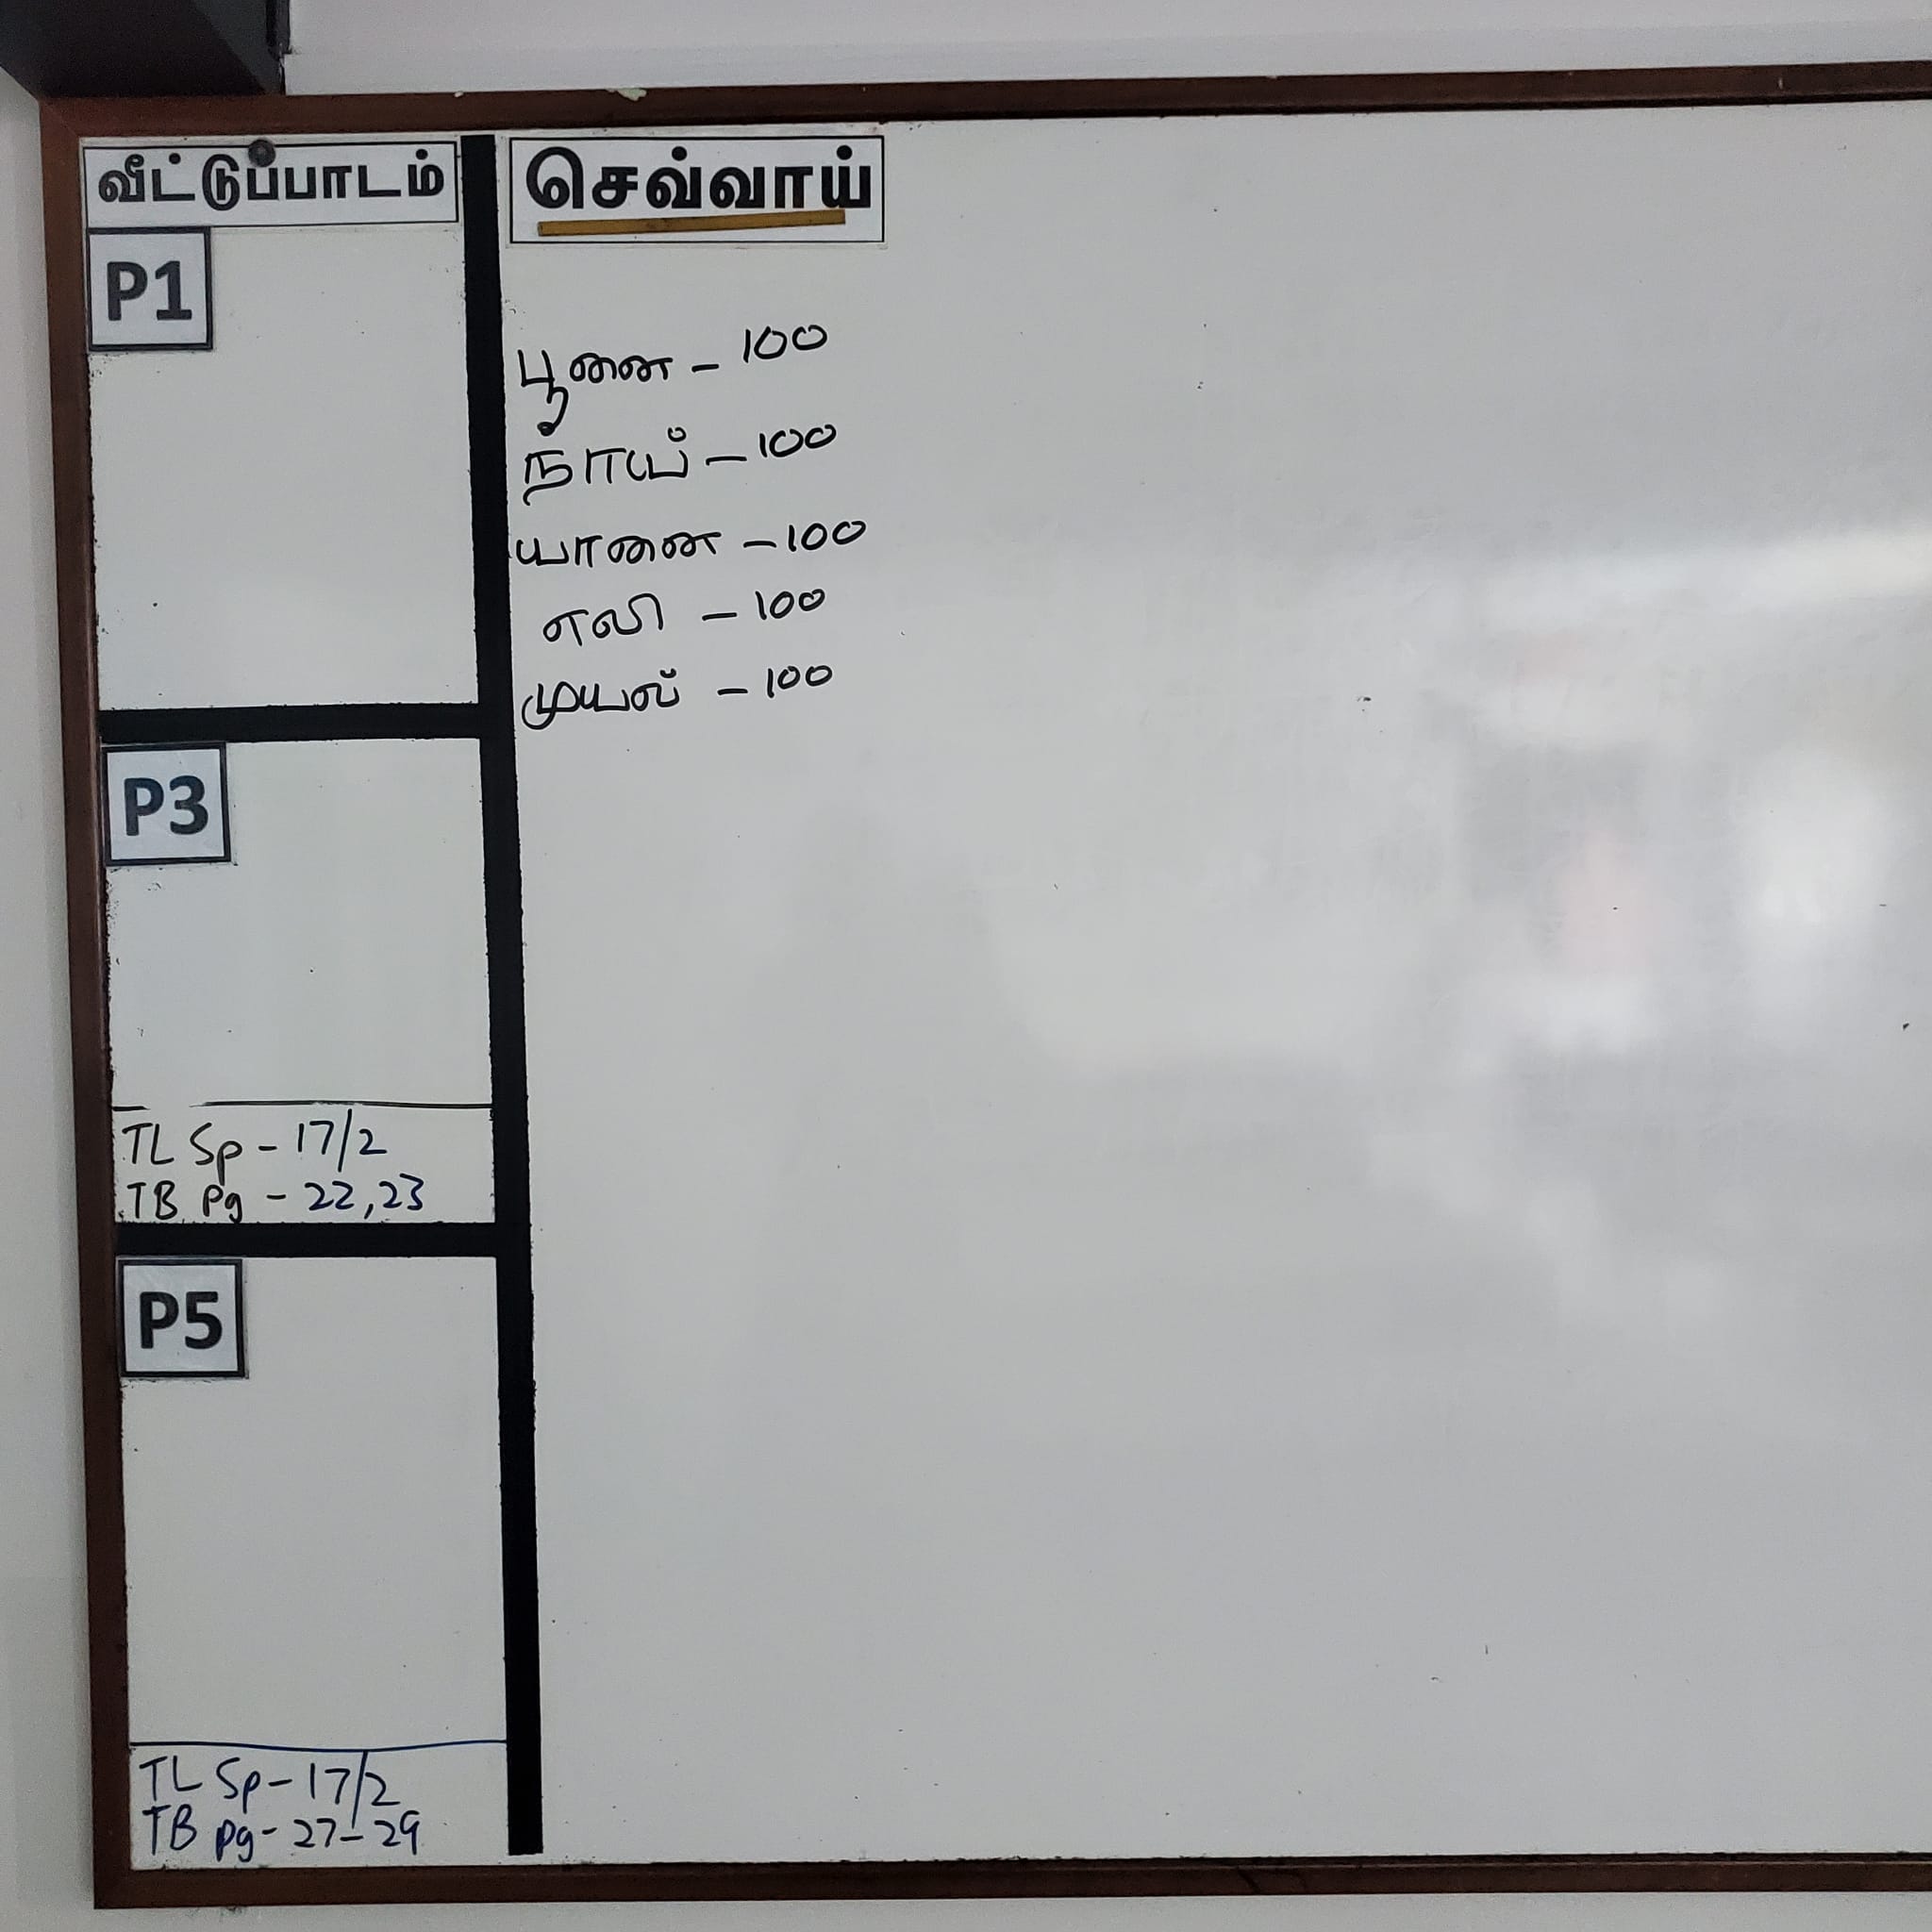 வீட்டுப்பாடம்
P1
P3
TL Sp - 17/2
TB Pg - 22, 23
P5
TL Sp - 17/2
TB pg - 27 - 29
செவ்வாய்
பூனை - 100
நாய் - 100
யானை - 100
எலி - 100
முயல் - 100